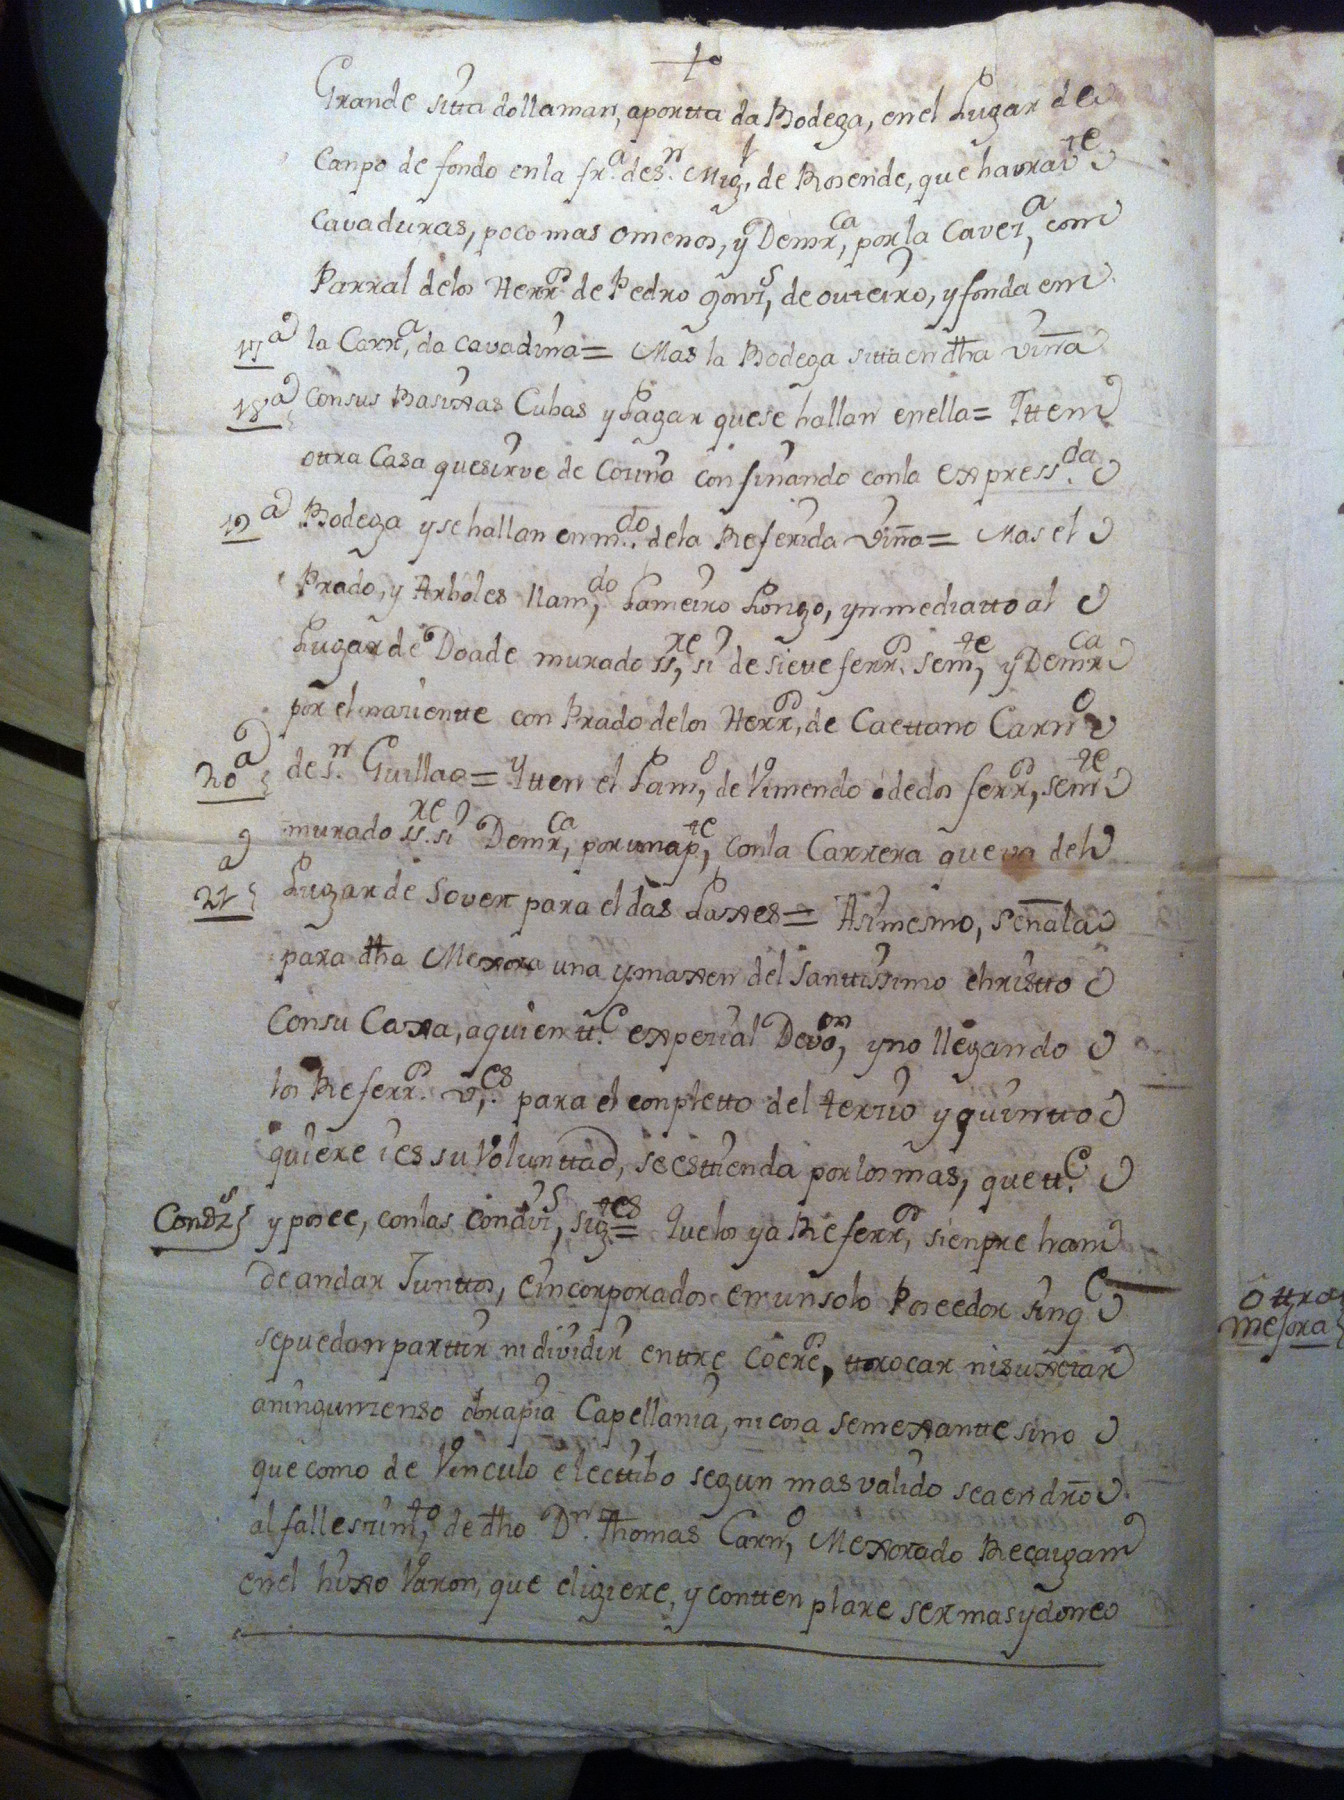 Grande sitta dollaman, aportta da Bodega, en el Lugar de
Canpo de fondo en la fr.ª de S.n Mig.l, de Rosende, que havra
Cavaduras, poco mas omenos, y Demr.ca, por la Cavez.a, con
Parral delos Herr.os de Pedro gonz.s, de outeiro, y fonda en
17ª la Carr.a, da Cavadiña = Mas la Bodega sitta en dha viña
18ª Consus Basixas Cubas y Lagar quese hallan enella = Ytten
otra Casa quesirve de Cozina Confinando conla express.da
19ª Bodega y se hallan en m.do dela Referida viña = Mas el
Prado, y Arboles llam.do, Lameiro Longo, ynmediatto al
Lugar de Doade murado ss.re, si de sieve ferr.os sem.te, y Demr.ca
por el naziente con Prado delos Herr.os, de Caettano Carn.o
20ª de S.n Guillao = Ytten el Lam.o, de Vimendo dedos ferr.os, sem.te
murado ss.re si Demr.ca, por una p.te, conla Carrera que va del
21ª Lugar de Sover para el das Laxes = Asimesmo, señala
para dha Mexora una ymaxen del Santtissimo christto
Consu Caxa, aquien tt.e expezial Devo.on, yno llegando
los Referr.os v.es para el conpletto del terzio y quintto
quiere i es su Volunttad, se esttienda por los mas, que tt.e
Condz.s y posee, conlas condiz.s, sig.tes = Quelos ya Referr.os, sienpre han
de andar Junttos, eincorporados en un solo Poseedor sinq.e
sepuedan parttir ni dividir enttre Coere.os, ttrocar ni suxetar
aningun zenso obrapia Capellania, ni cosa semexantte sino
que como de Vinculo electtibo segun mas valido sea en dro
al fallezim.to, de dho D.n Thomas Carn.o, Mexorado Recaigan
en el hixo Varon, que eligiere, y conttenplare ser mas ydoneo
Ottra
mejora